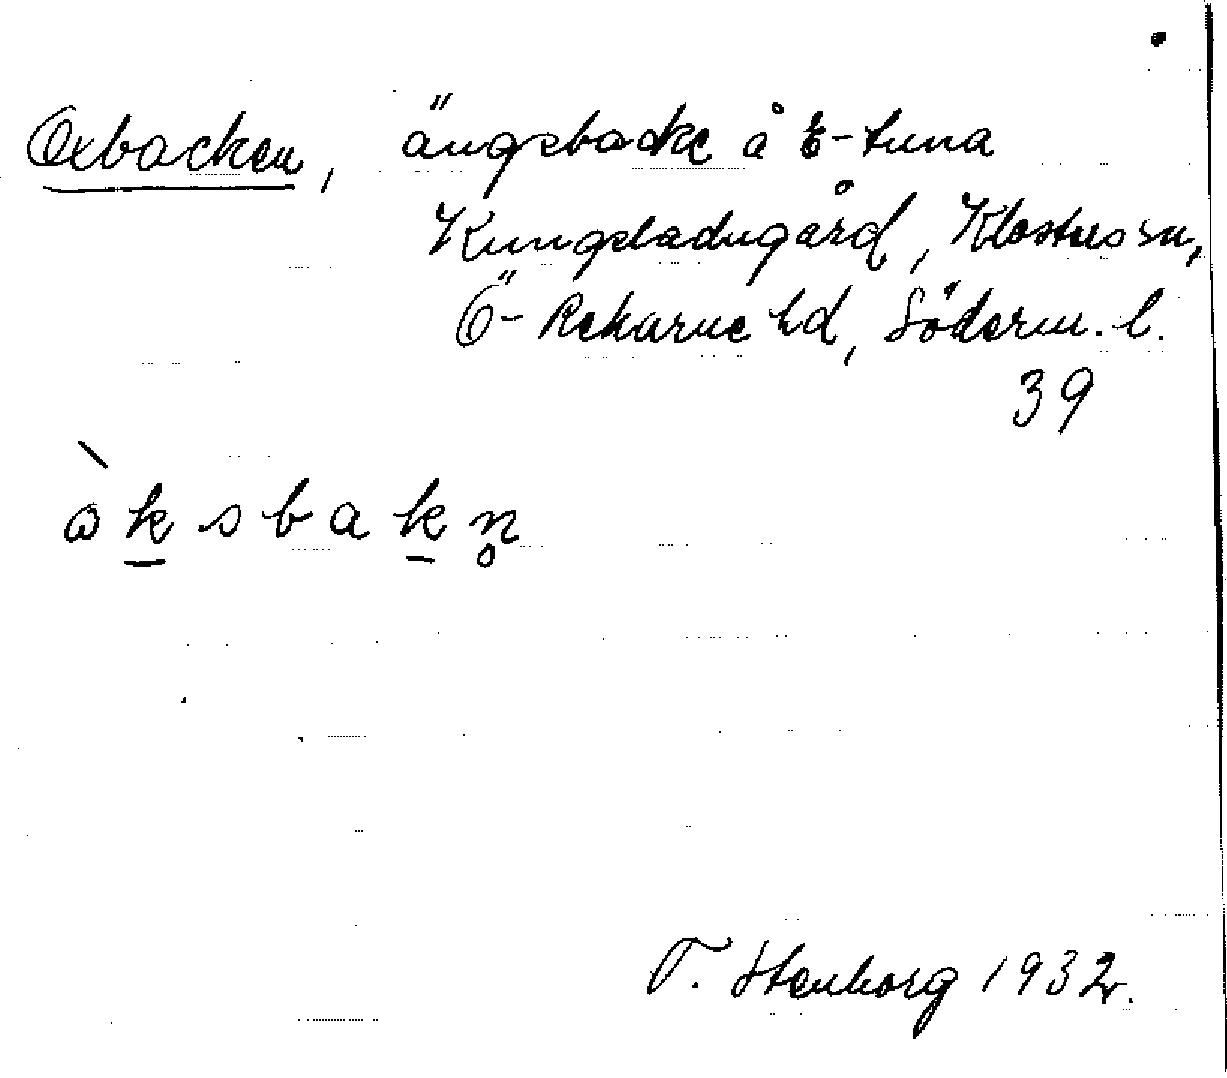 Oxbacken, ängsbacke å E-tuna
Kungsladugård, Klosters sn,
Ö- Rekarne hd, Söderm. l.
39
ὼksbakn̥
T. Stenborg 1932.